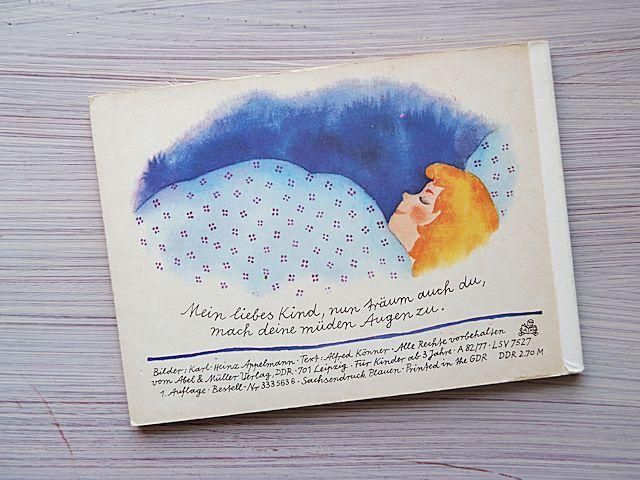 Mein liebes Kind, nun träum auch du,
mach deine müden Augen zu.
Bilder: Karl-Heinz Appelmann · Text: Alfred Könner · Alle Rechte vorbehalten
vom Abel & Müller Verlag, DDR-701 Leipzig · Für Kinder ab 3 Jahre · A 82/77 · LSV 7527
1. Auflage · Bestell-Nr. 333 563 6 · Sachsendruck Plauen · Printed in the GDR DDR 2.70 M